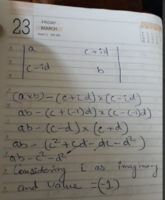 23
FRIDAY
MARCH
a c+id
c-id b
(a×b) - (c+id)×(c-id)
ab - (c+(-1)d)×(c-(-1)d)
ab - (c-d)×(c+d)
ab - (c²+cd-dc-d²)
ab - c²-d²
Considering i as imaginary
and value = (-1)